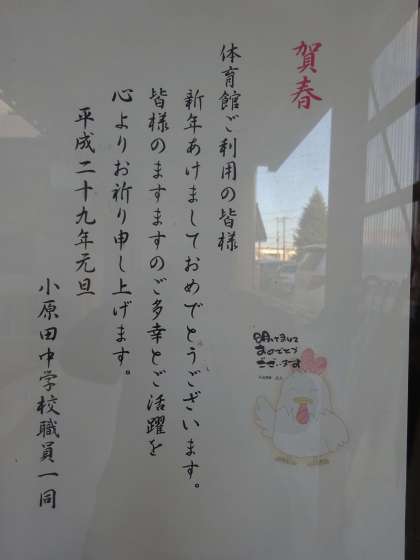 賀春
体育館ご利用の皆様
新年あけましておめでとうございます。
皆様のますますのご多幸とご活躍を
心よりお祈り申し上げます。
平成二十九年元旦
小原田中学校職員一同
明けまして
おめでとう
ございます